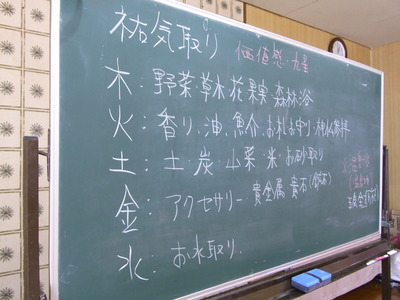 祐気取り
価値感・九星
木：野菜、草木、花、果実、森林浴
火：香り、油、魚介、お札お守り、神仏参拝
土：土・炭・山菜・米・お砂取り
金：アクセサリー・貴金属、宝石(鉱石)
水：お水取り.